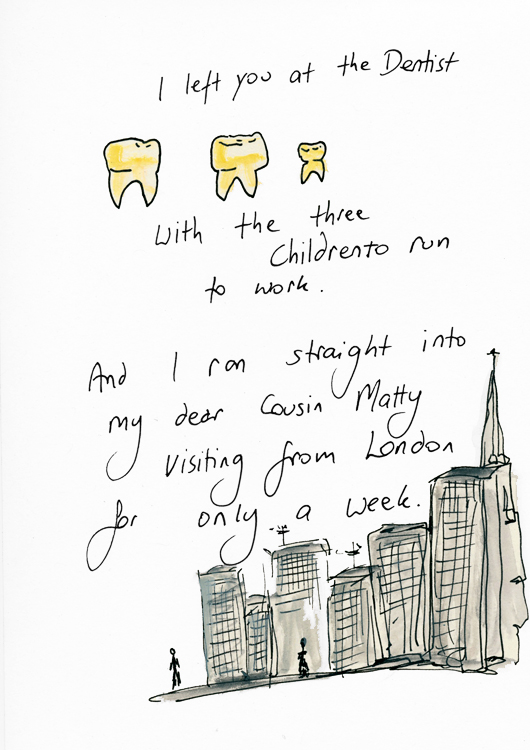 I left you at the Dentist
with the three
Childrento run
to work.
And I ran straight into
my dear Cousin Matty
visiting from London
for only a week.